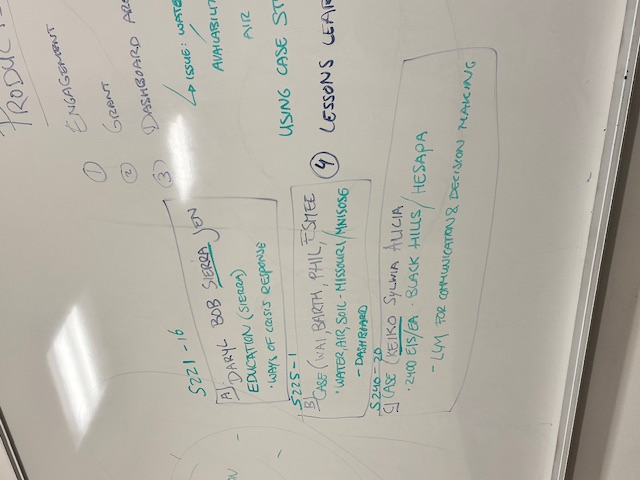 PRODUCT
① ENGAGEMENT
② GRANT
③ DASHBOARD
↳ ISSUE: WATE
AVAILABILIT
AIR
USING CASE ST
④ LESSONS LEAR
S221-16
A) DARYL BOB SIERRA JEN
EDUCATION (SIERRA)
• WAYS OF CRISIS RESPONSE
S225-1
B) CASE (WAI, BARTH, PHIL, ESMEE
• WATER, AIR, SOIL - MISSOURI/MNISOSE
- DASHBOARD
S240-20
C) CASE (KEIKO SYLVIA ALICIA
• 2400 EIS/EA • BLACK HILLS / HESAPA
- LLM FOR COMMUNICATION & DECISION MAKING